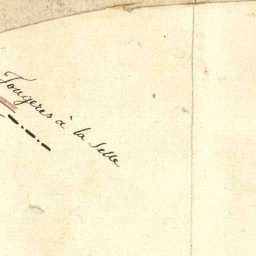 Fougeres à la Selle